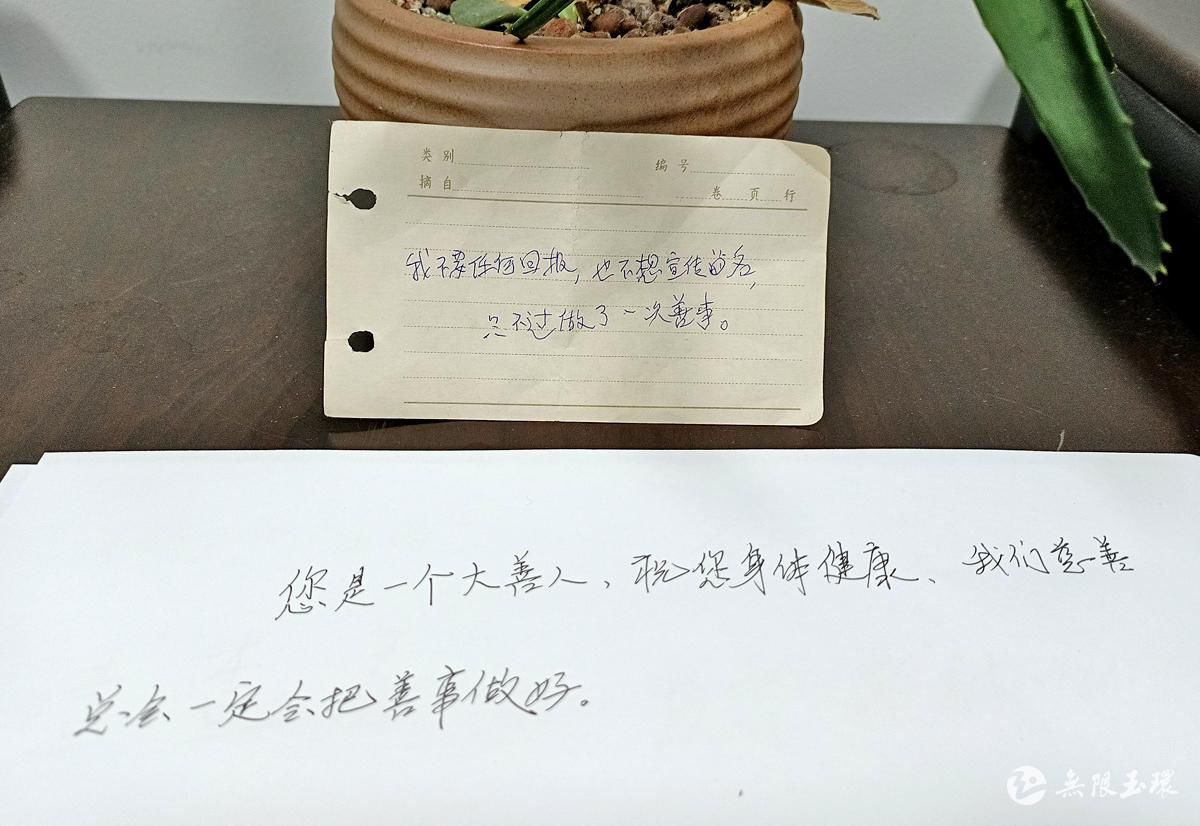 类 别 编 号
摘 自 卷 页 行
我不要任何回报，也不想宣传留名，
只不过做了一次善事。
您是一个大善人，祝您身体健康、我们慈善
总会一定会把善事做好。
無限玉環